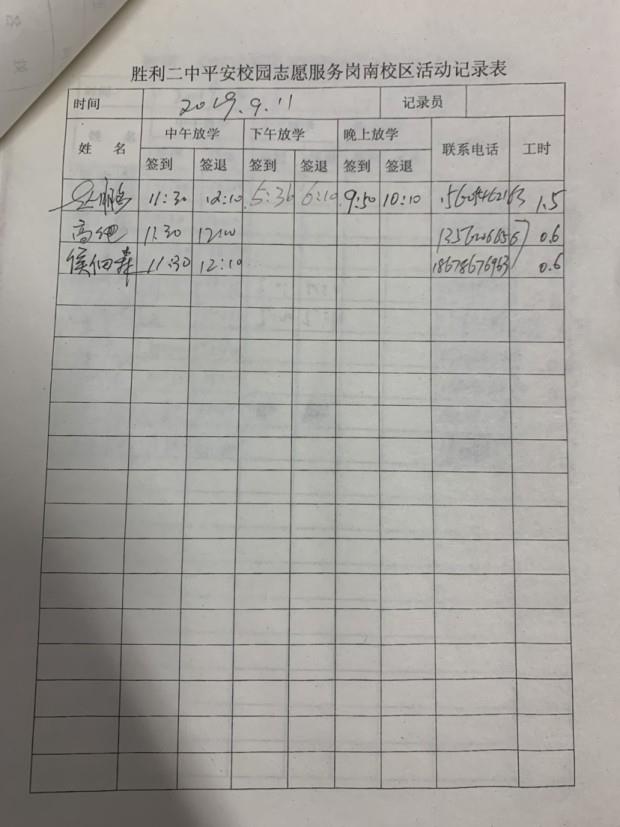 胜利二中平安校园志愿服务岗南校区活动记录表
时间 2019.9.11 记录员
姓 名 中午放学 下午放学 晚上放学 联系电话 工时
签到 签退 签到 签退 签到 签退
11:30 12:10 5:30 6:10 9:50 10:10 1.5
高 11:30 12:00 0.6
侯佃森 11:30 12:10 18678676963 0.6